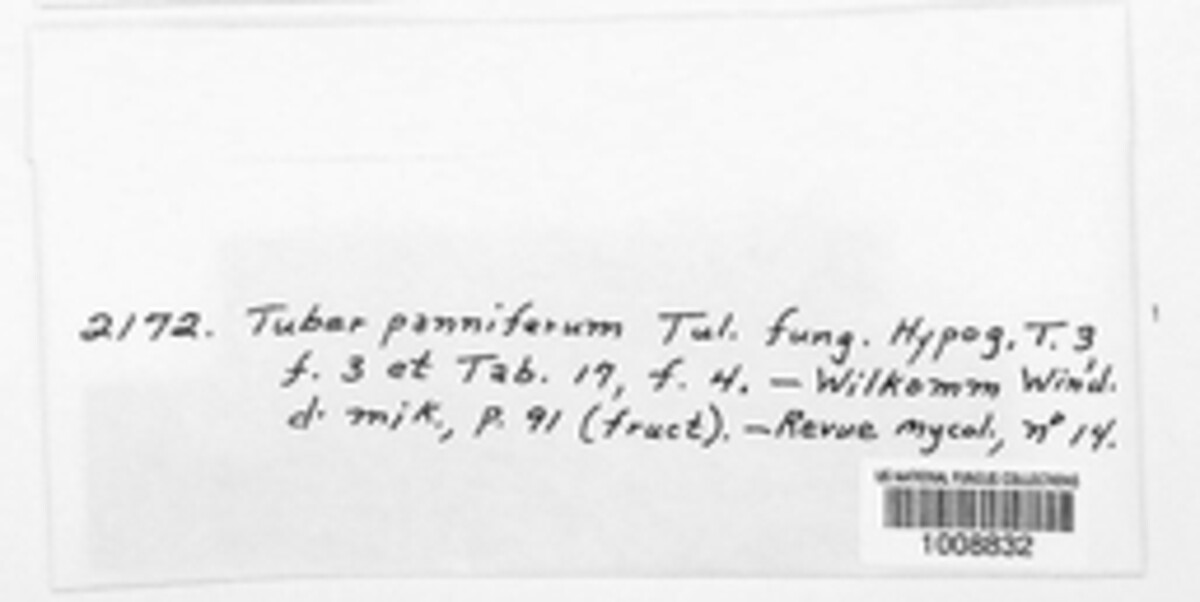 2172. Tuber panniferum Tul. fung. Hypog. T. 3
f. 3 et Tab. 17, f. 4. — Wilkomm Wind.
d. mik., p. 91 (fruct). — Revue mycol., nº 14.
US NATIONAL FUNGUS COLLECTIONS
1008832